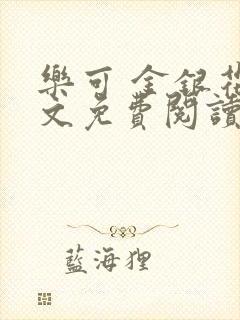 樂可 金銀花
文免費閱讀
藍海狸